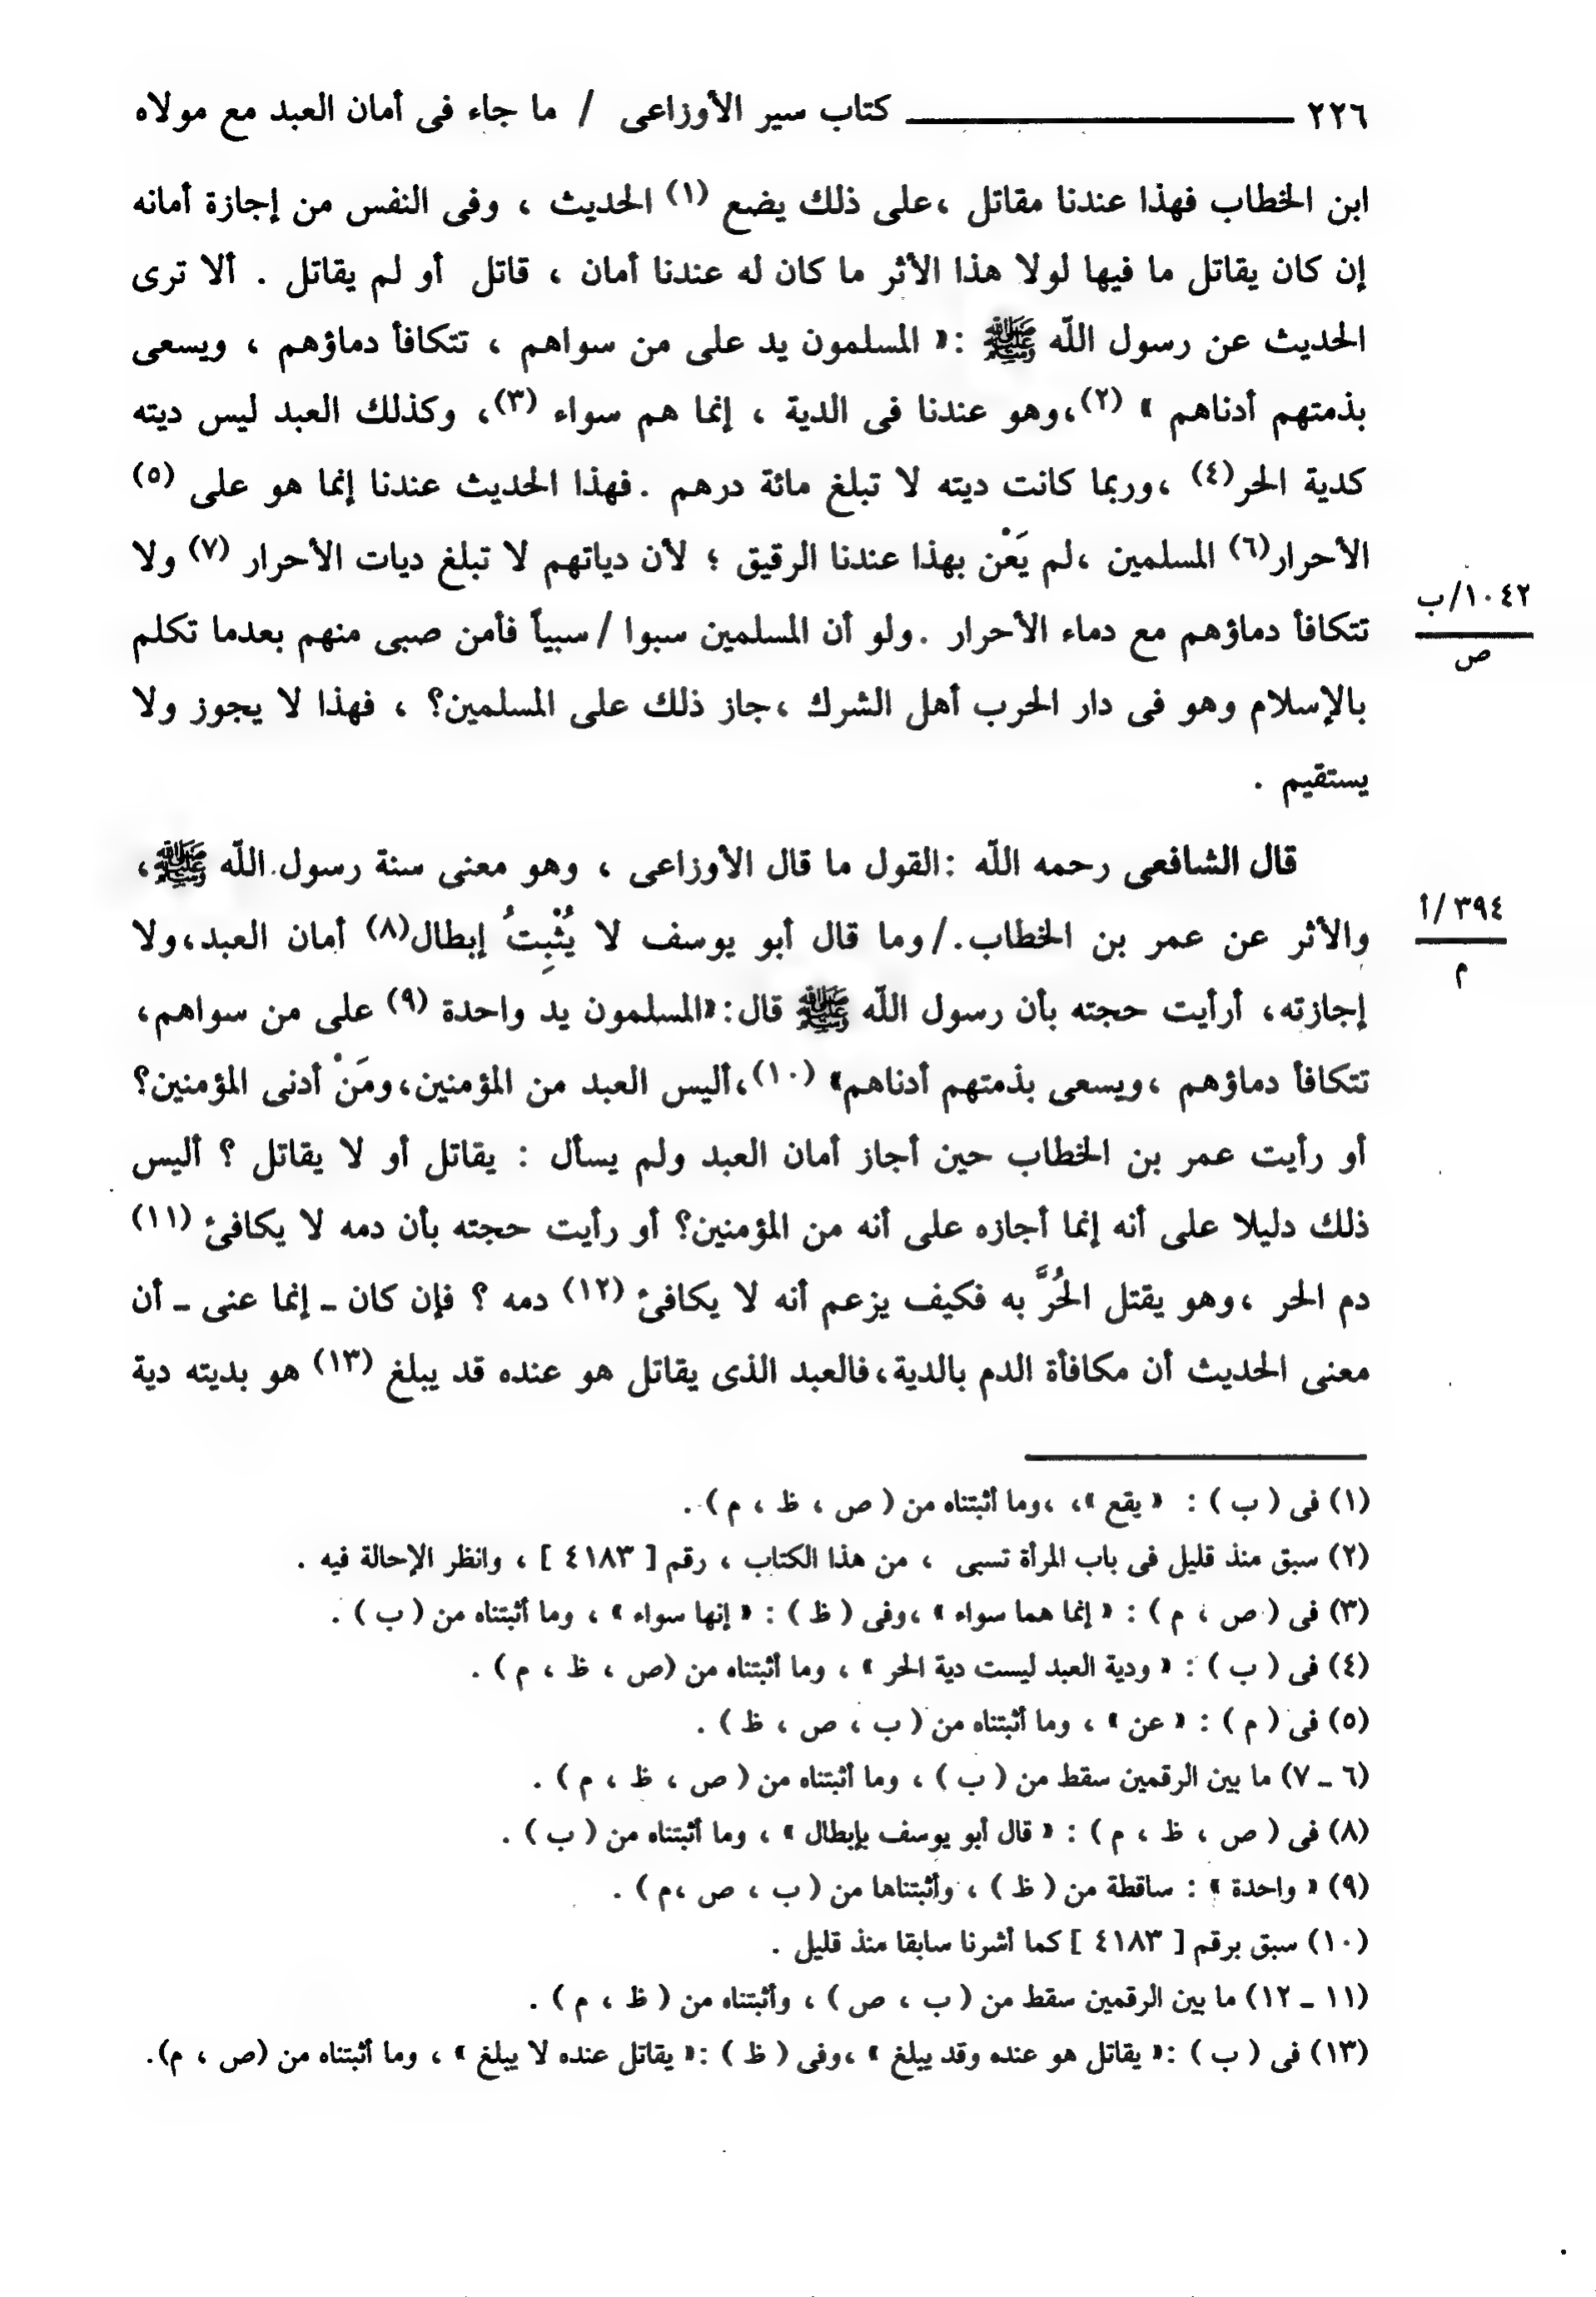 ٢٢٦ ــــــــــــــــ كتاب سير الأوزاعى / ما جاء فى أمان العبد مع مولاه
ابن الخطاب فهذا عندنا مقاتل ،على ذلك يضع (١) الحديث ، وفى النفس من إجازة أمانه
إن كان يقاتل ما فيها لولا هذا الأثر ما كان له عندنا أمان ، قاتل أو لم يقاتل . ألا ترى
الحديث عن رسول اللّه ﷺ :« المسلمون يد على من سواهم ، تتكافأ دماؤهم ، ويسعى
بذمتهم أدناهم » (٢)،وهو عندنا فى الدية ، إنما هم سواء (٣)، وكذلك العبد ليس ديته
كدية الحر(٤) ،وربما كانت ديته لا تبلغ مائة درهم .فهذا الحديث عندنا إنما هو على (٥)
الأحرار(٦) المسلمين ،لم يَعْن بهذا عندنا الرقيق ؛ لأن دياتهم لا تبلغ ديات الأحرار (٧) ولا
١٠٤٢/ب
تتكافأ دماؤهم مع دماء الأحرار .ولو أن المسلمين سبوا /سبياً فأمن صبى منهم بعدما تكلم
ص
بالإسلام وهو فى دار الحرب أهل الشرك ،جاز ذلك على المسلمين؟ ، فهذا لا يجوز ولا
يستقيم .
قال الشافعى رحمه اللّه :القول ما قال الأوزاعى ، وهو معنى سنة رسول اللّه ﷺ،
٣٩٤/أ
والأثر عن عمر بن الخطاب./وما قال أبو يوسف لا يُثْبِتُ إبطال(٨) أمان العبد،ولا
م
إجازته، أرأيت حجته بأن رسول اللّه ﷺ قال:«المسلمون يد واحدة (٩) على من سواهم،
تتكافأ دماؤهم ،ويسعى بذمتهم أدناهم» (١٠)،أليس العبد من المؤمنين،ومَنْ أدنى المؤمنين؟
أو رأيت عمر بن الخطاب حين أجاز أمان العبد ولم يسأل : يقاتل أو لا يقاتل ؟ أليس
ذلك دليلا على أنه إنما أجازه على أنه من المؤمنين؟ أو رأيت حجته بأن دمه لا يكافئ (١١)
دم الحر ،وهو يقتل الحُرَّ به فكيف يزعم أنه لا يكافئ (١٢) دمه ؟ فإن كان ـ إنما عنى ـ أن
معنى الحديث أن مكافأة الدم بالدية،فالعبد الذى يقاتل هو عنده قد يبلغ (١٣) هو بديته دية
(١) فى ( ب ) : « يقع »، ،وما أثبتناه من ( ص ، ظ ، م ) .
(٢) سبق منذ قليل فى باب المرأة تسبى ، من هذا الكتاب ، رقم [ ٤١٨٣ ] ، وانظر الإحالة فيه .
(٣) فى ( ص ، م ) : « إنما هما سواء » ،وفى ( ظ ) : « إنها سواء » ، وما أثبتناه من ( ب ) .
(٤) فى ( ب ) : « ودية العبد ليست دية الحر » ، وما أثبتناه من (ص ، ظ ، م ) .
(٥) فى ( م ) : « عن » ، وما أثبتناه من ( ب ، ص ، ظ ) .
(٦ ـ ٧) ما بين الرقمين سقط من ( ب ) ، وما أثبتناه من ( ص ، ظ ، م ) .
(٨) فى ( ص ، ظ ، م ) : « قال أبو يوسف بإبطال » ، وما أثبتناه من ( ب ) .
(٩) « واحدة » : ساقطة من ( ظ ) ، وأثبتناها من ( ب ، ص ،م ) .
(١٠) سبق برقم [ ٤١٨٣ ] كما أشرنا سابقا منذ قليل .
(١١ ـ ١٢) ما بين الرقمين سقط من ( ب ، ص ) ، وأثبتناه من ( ظ ، م ) .
(١٣) فى ( ب ) :« يقاتل هو عنده وقد يبلغ » ،وفى ( ظ ) :« يقاتل عنده لا يبلغ » ، وما أثبتناه من (ص ، م).